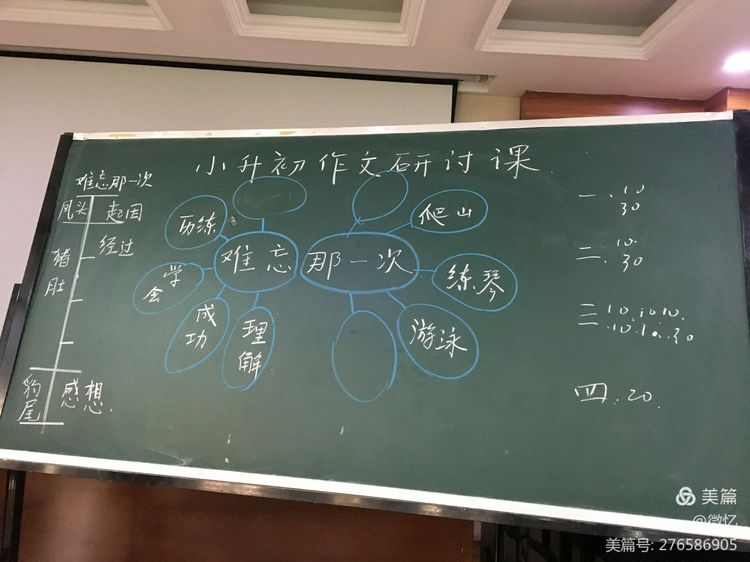 小升初作文研讨课.
难忘那一次
凤头 起因
猪肚 经过
豹尾 感想.
难忘
历练
学会
成功
理解
那一次
爬山
练琴
游泳
一、10.
30
二、10.
30
三、10.10.10.
10.10.30
四、20.
美篇
@微忆
美篇号: 276586905